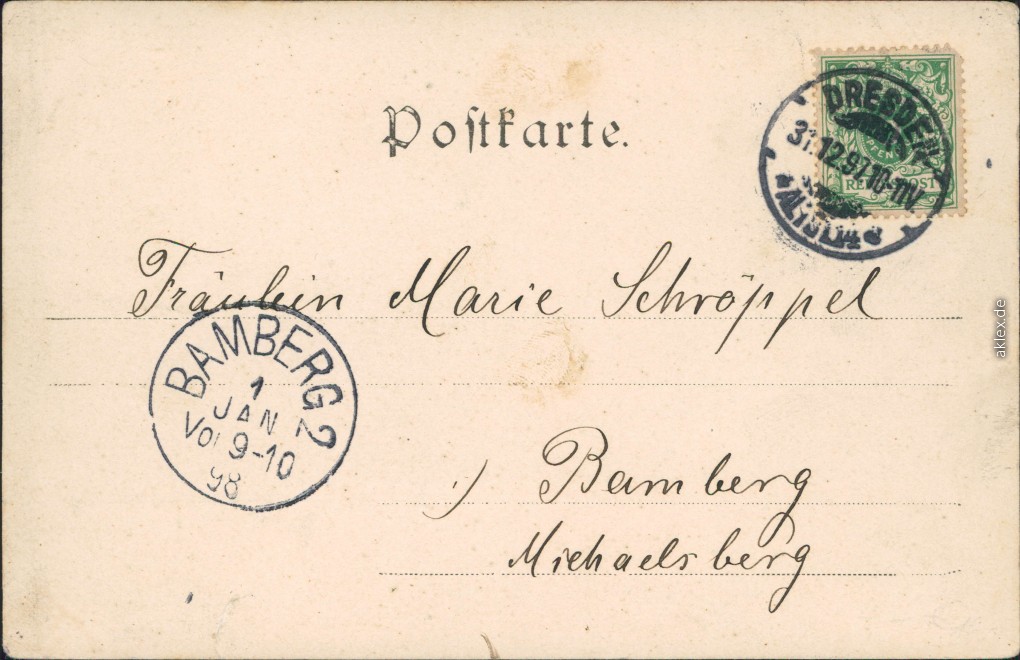 Postkarte.
DRESDEN
31.12.97.10-11V
ALTST.14 d
REICHSPOST
Fräulein Marie Schröppel
BAMBERG 2
1
JAN
Vor 9-10
98
Bamberg
Michaelsberg
aklex.de